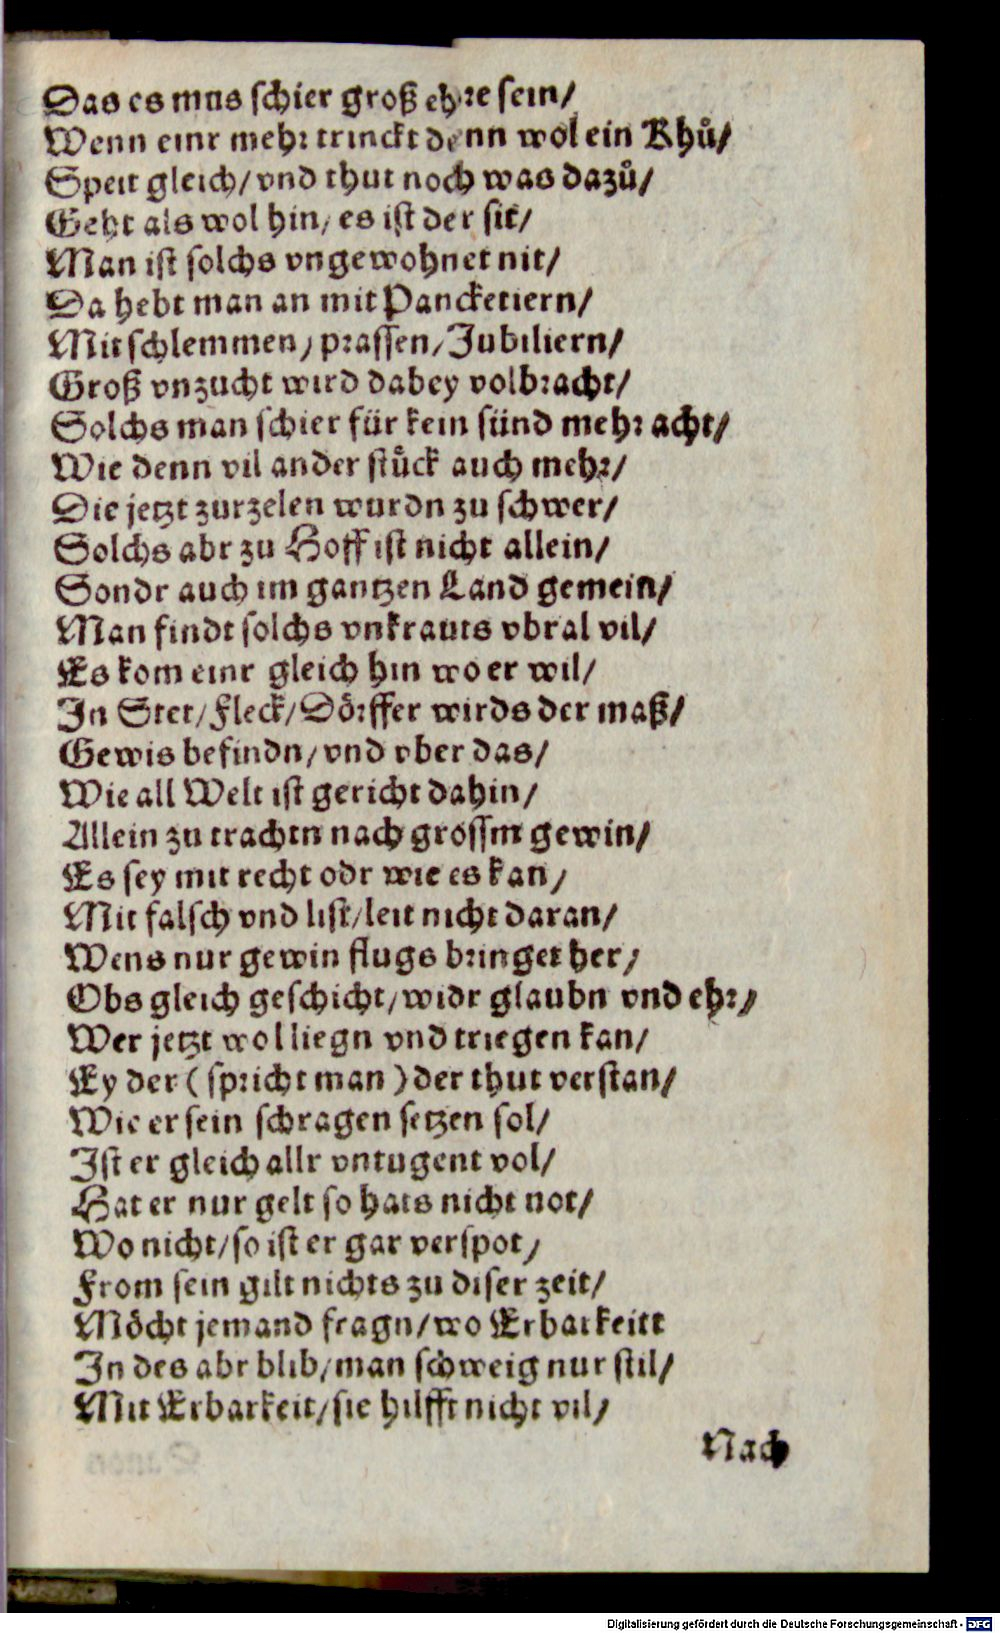 Das es mus schier groß ehre sein/
Wenn einr mehr trinckt denn wol ein Khů/
Speit gleich/ vnd thut noch was dazů/
Geht als wol hin/ es ist der sit/
Man ist solchs vngewohnet nit/
Da hebt man an mit Pancketiern/
Mit schlemmen/ prassen/ Jubiliern/
Groß vnzucht wird dabey volbracht/
Solchs man schier für kein sünd mehr acht/
Wie denn vil ander stůck auch mehr/
Die jetzt zurzelen wurdn zu schwer/
Solchs abr zu Hoff ist nicht allein/
Sondr auch im gantzen Land gemein/
Man findt solchs vnkrauts vbral vil/
Es kom einr gleich hin wo er wil/
In Stet/ Fleck/ Dörffer wirds der maß/
Gewis befindn/ vnd vber das/
Wie all Welt ist gericht dahin/
Allein zu trachtn nach grossm gewin/
Es sey mit recht odr wie es kan/
Mit falsch vnd list/ leit nicht daran/
Wens nur gewin flugs bringet her/
Obs gleich geschicht/ widr glaubn vnd ehr/
Wer jetzt wol liegn vnd triegen kan/
Ey der (spricht man) der thut verstan/
Wie er sein schragen setzen sol/
Ist er gleich allr vntugent vol/
Hat er nur gelt so hats nicht not/
Wo nicht/ so ist er gar verspot/
From sein gilt nichts zu diser zeit/
Möcht jemand fragn/ wo Erbarkeitt
In des abr blib/ man schweig nur stil/
Mit Erbarkeit/ sie hilfft nicht vil/
Nach
Digitalisierung gefördert durch die Deutsche Forschungsgemeinschaft - DFG